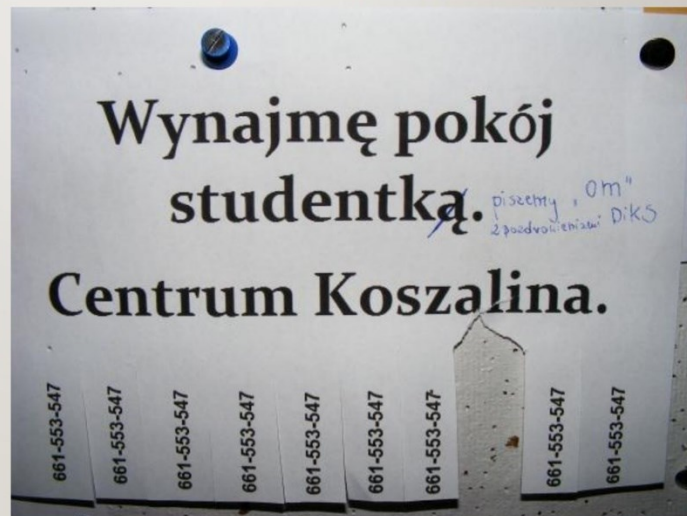 Wynajmę pokój
studentką.
piszemy „om"
z pozdrowieniami DiKS
Centrum Koszalina.
661-553-547
661-553-547
661-553-547
661-553-547
661-553-547
661-553-547
661-553-547
661-553-547
661-553-547